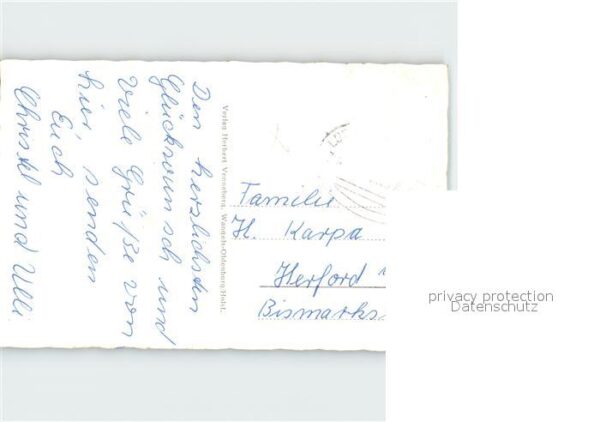 Den herzlichsten
Glückwunsch und
viele Grüße von
hier senden
Euch
Christel und Ulli
Verlag Herbert Venneberg, Wangels-Oldenburg/Holst.
Familie
H. Karpa
Herford
Bismarks
privacy protection
Datenschutz